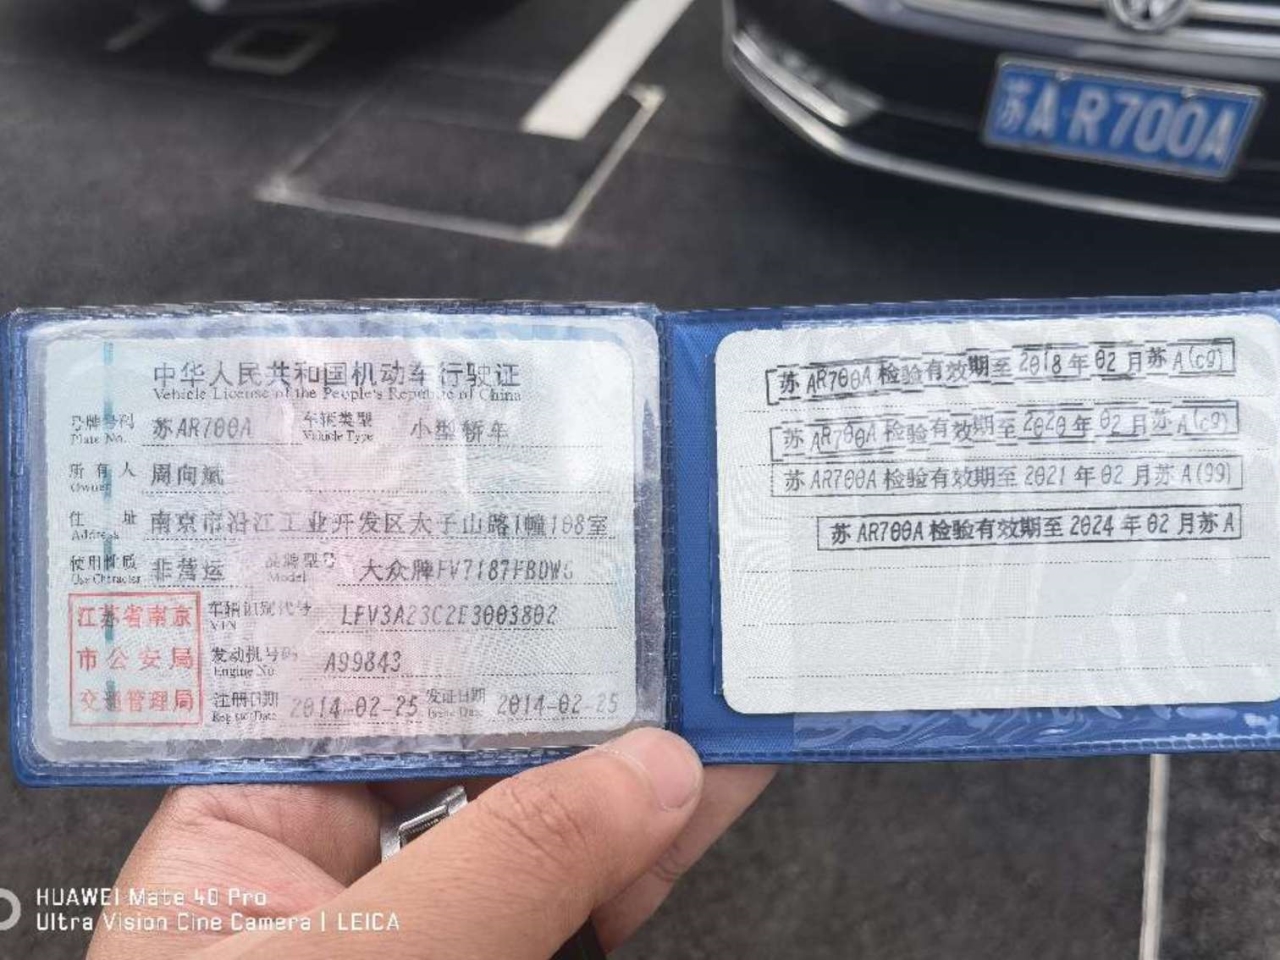 苏A·R700A
中华人民共和国机动车行驶证
Vehicle License of the People's Republic of China
号牌号码 苏AR700A 车辆类型 小型轿车
Plate No. Vehicle Type
所有人 周向斌
Owner
住址 南京市沿江工业开发区太子山路1幢108室
Address
使用性质 非营运 品牌型号 大众牌FV7187FBDWG
Use Character Model
江苏省南京
市公安局
交通管理局
车辆识别代号 LFV3A23C2E3003802
VIN
发动机号码 A99843
Engine No.
注册日期 2014-02-25 发证日期 2014-02-25
Register Date Issue Date
苏AR700A检验有效期至2018年02月苏A(c9)
苏AR700A检验有效期至2020年02月苏A(c9)
苏AR700A检验有效期至2021年02月苏A(99)
苏AR700A检验有效期至2024年02月苏A
HUAWEI Mate 40 Pro
Ultra Vision Cine Camera | LEICA